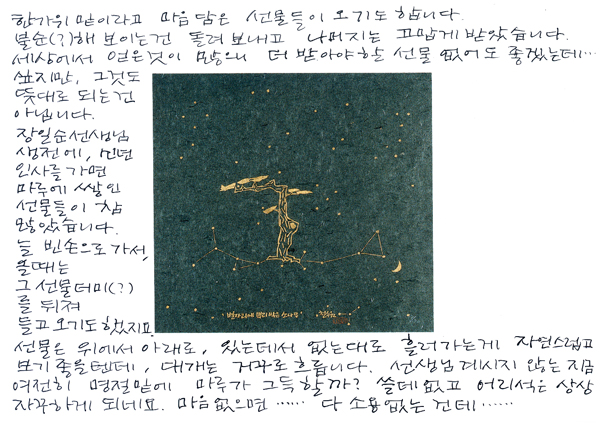 한가위 맏이라고 마음 담은 선물들이 오기도 합니다.
불순(?)해 보이는건 돌려 보내고 나머지는 고맙게 받았습니다.
세상에서 얻은것이 많으니 더 받아야할 선물 없어도 좋겠는데…
싶지만, 그것도
뜻대로 되는건
아닙니다.
장일순선생님
생전에, 신년
인사를 가면
마루에 쌓인
선물들이 참
많았습니다.
늘 빈손으로 가서,
올때는
그 선물더미(?)
를 뒤져
들고 오기도 했지요.
별자리에 뿌리박은 소나무
선물은 위에서 아래로, 있는데서 없는대로 흘러가는게 자연스럽고
보기 좋을텐데, 대개는 거꾸로 흐릅니다. 선생님 계시지 않는 지금
여전히 명절맏에 마루가 그득할까? 쓸데없고 어리석은 상상
자꾸하게 되네요. 마음 없으면 …… 다 소용없는 건데 ……